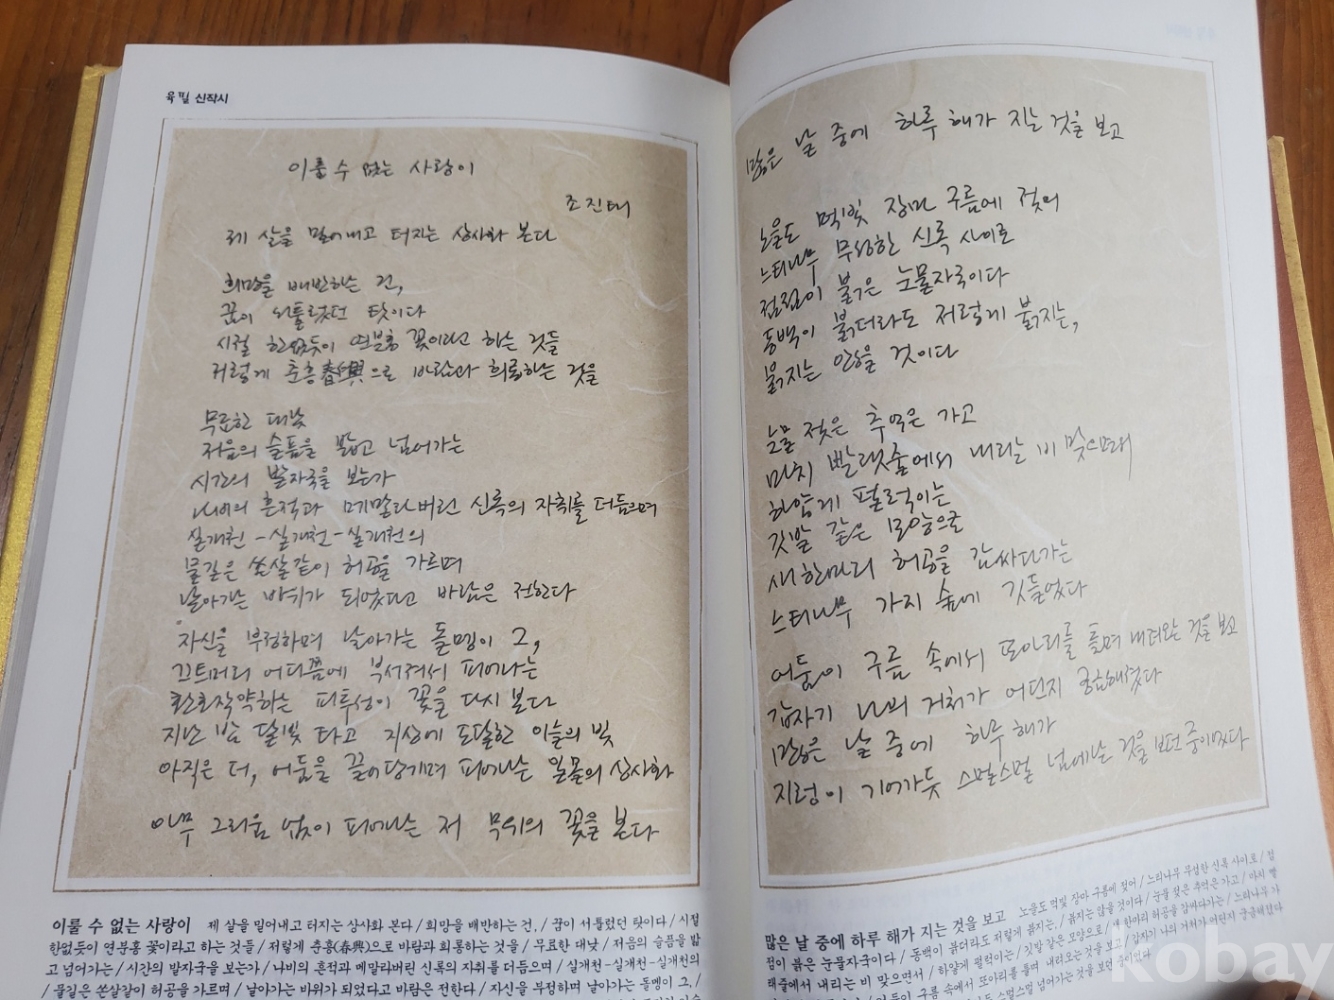 육필 신작시
이룰 수 없는 사랑이
조진태
제 살을 밀어내고 터지는 상사화 본다
희망을 배반하는 건,
꿈이 서툴렀던 탓이다
시절 한없듯이 연분홍 꽃이라고 하는 것들
저렇게 춘흥春興으로 바람과 희롱하는 것을
무료한 대낮
저음의 슬픔을 밟고 넘어가는
시간의 발자국을 보는가
나비의 흔적과 메말라버린 신록의 자취를 더듬으며
실개천-실개천-실개천의
물길은 쏜살같이 허공을 가르며
날아가는 바위가 되었다고 바람은 전한다
자신을 부정하며 날아가는 돌멩이 그,
끄트머리 어디쯤에 부서져서 피어나는
흐드작약하는 피투성이 꽃을 다시 본다
지난 밤 달빛 타고 지상에 도달한 이슬의 빛
아직은 더, 어둠을 끌어당기며 피어나는 일몰의 상사화
아무 그리움 없이 피어나는 저 무위의 꽃을 본다
이룰 수 없는 사랑이 제 살을 밀어내고 터지는 상사화 본다 / 희망을 배반하는 건, / 꿈이 서툴렀던 탓이다 / 시절
한없듯이 연분홍 꽃이라고 하는 것들 / 저렇게 춘흥(春興)으로 바람과 희롱하는 것을 / 무료한 대낮 / 저음의 슬픔을 밟
고 넘어가는 / 시간의 발자국을 보는가 / 나비의 흔적과 메말라버린 신록의 자취를 더듬으며 / 실개천-실개천-실개천의
/ 물길은 쏜살같이 허공을 가르며 / 날아가는 바위가 되었다고 바람은 전한다 / 자신을 부정하며 날아가는 돌멩이 그, /
많은 날 중에 하루 해가 지는 것을 보고
노을도 먹빛 장마 구름에 젖어
느티나무 무성한 신록 사이로
점점이 붉은 눈물자국이다
동백이 붉더라도 저렇게 붉지는,
붉지는 않을 것이다
눈물 젖은 추억은 가고
마치 빨랫줄에서 내리는 비 맞으며
하얗게 펄럭이는
깃발 같은 모양으로
새 한마리 허공을 감싸다가는
느티나무 가지 숲에 깃들었다
어둠이 구름 속에서 또아리를 틀며 내려오는 것을 보고
갑자기 나비 거처가 어딘지 궁금해졌다
많은 날 중에 하루 해가
지렁이 기어가듯 스멀스멀 넘어가는 것을 보던 중이었다
많은 날 중에 하루 해가 지는 것을 보고 노을도 먹빛 장마 구름에 젖어 / 느티나무 무성한 신록 사이로 / 점
점이 붉은 눈물자국이다 / 동백이 붉더라도 저렇게 붉지는, / 붉지는 않을 것이다 / 눈물 젖은 추억은 가고 / 마치 빨
랫줄에서 내리는 비 맞으면서 / 하얗게 펄럭이는 / 깃발 같은 모양으로 / 새 한마리 허공을 감싸다가는 / 느티나무 가
kobay